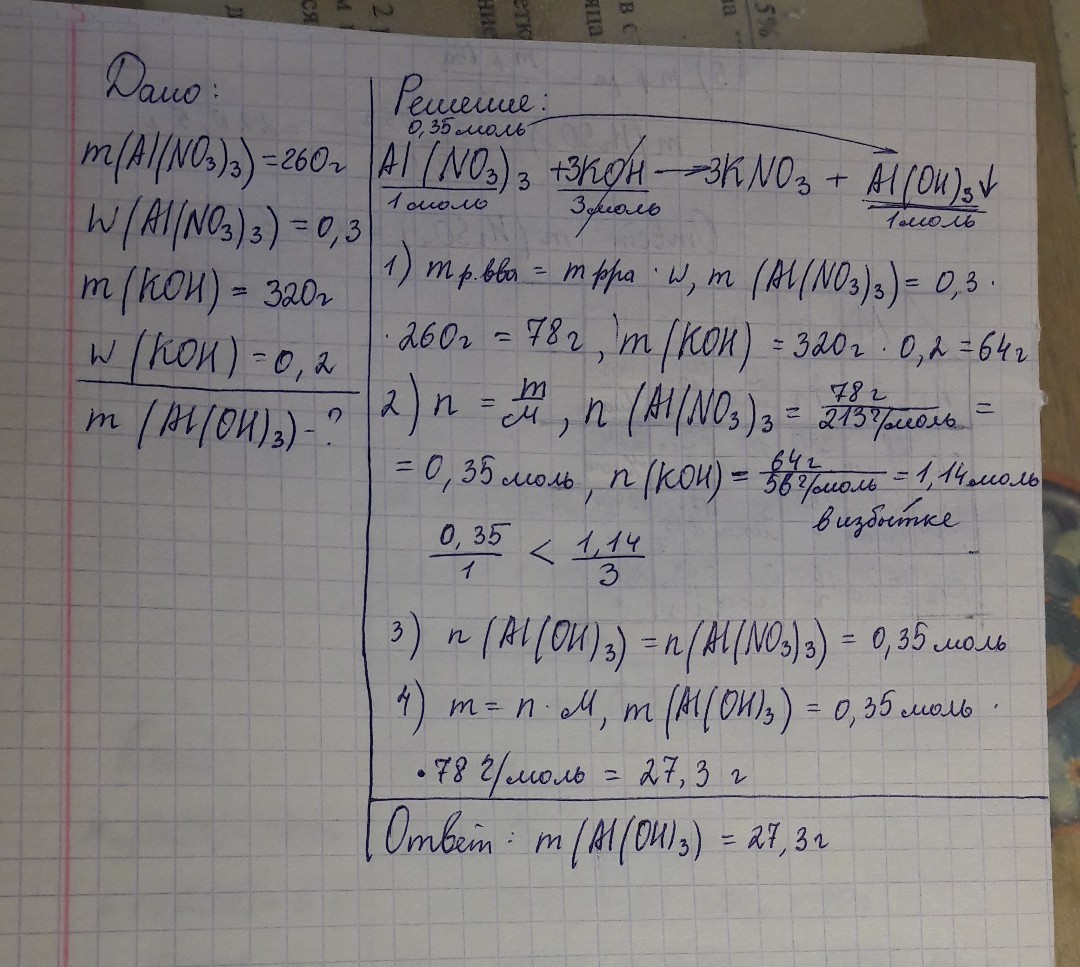 Дано:
m(Al(NO₃)₃)=260г
W(Al(NO₃)₃)=0,3
m(KOH)=320г
W(KOH)=0,2
m(Al(OH)₃)-?
Решение:
0,35моль
Al(NO₃)₃ +3KOH → 3KNO₃ + Al(OH)₃↓
1моль 3моль 1моль
1) m р.вва = m рра · w, m (Al(NO₃)₃)= 0,3 ·
· 260г = 78г, m(KOH) = 320г · 0,2 =64г
2) n = m/M, n (Al(NO₃)₃ = 78г/213г/моль =
= 0,35моль, n(KOH)= 64г/56г/моль = 1,14моль
в избытке
0,35/1 < 1,14/3
3) n (Al(OH)₃) =n(Al(NO₃)₃) = 0,35моль
4) m= n · M, m(Al(OH)₃) = 0,35моль ·
· 78 г/моль = 27,3 г
Ответ: m(Al(OH)₃) = 27,3г